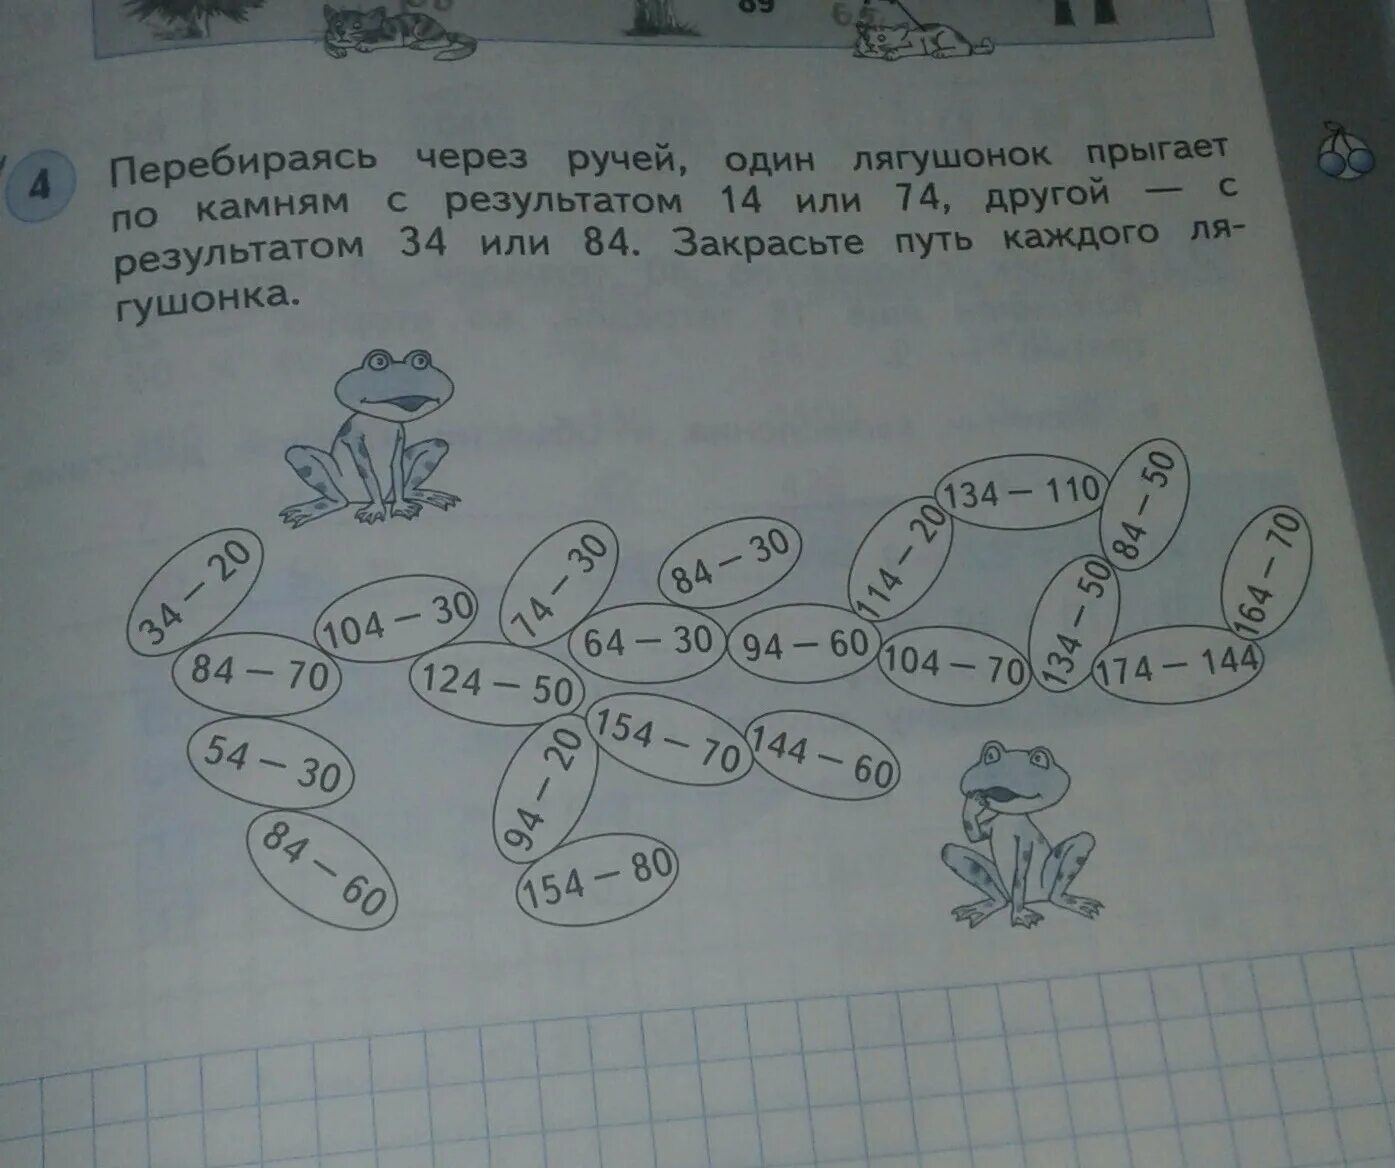 89
4
Перебираясь через ручей, один лягушонок прыгает
по камням с результатом 14 или 74, другой — с
результатом 34 или 84. Закрасьте путь каждого ля-
гушонка.
134 – 110
84 – 50
114 – 20
164 – 70
34 – 20
104 – 30
74 – 30
84 – 30
134 – 50
84 – 70
124 – 50
64 – 30
94 – 60
104 – 70
174 – 144
54 – 30
94 – 20
154 – 70
144 – 60
84 – 60
154 – 80